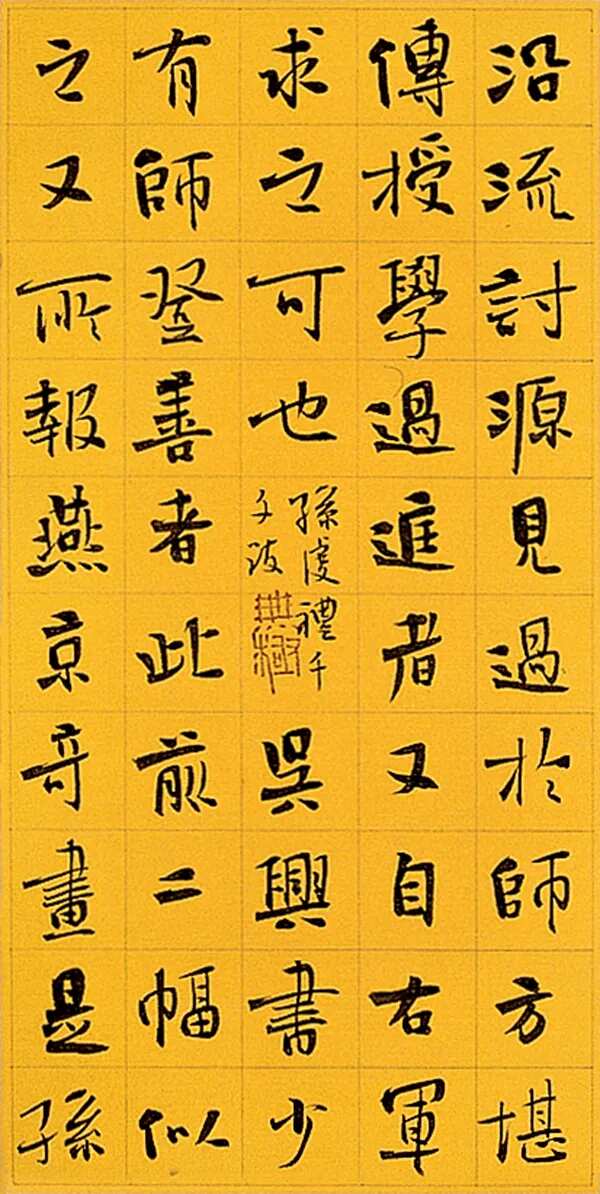 沿流討源見過於師方堪
傳授學過進者又自右軍
求之可也
孫虔禮千
文跋
吳興書少
有師登善者此前二幅似
之又所報燕京奇畫是孫